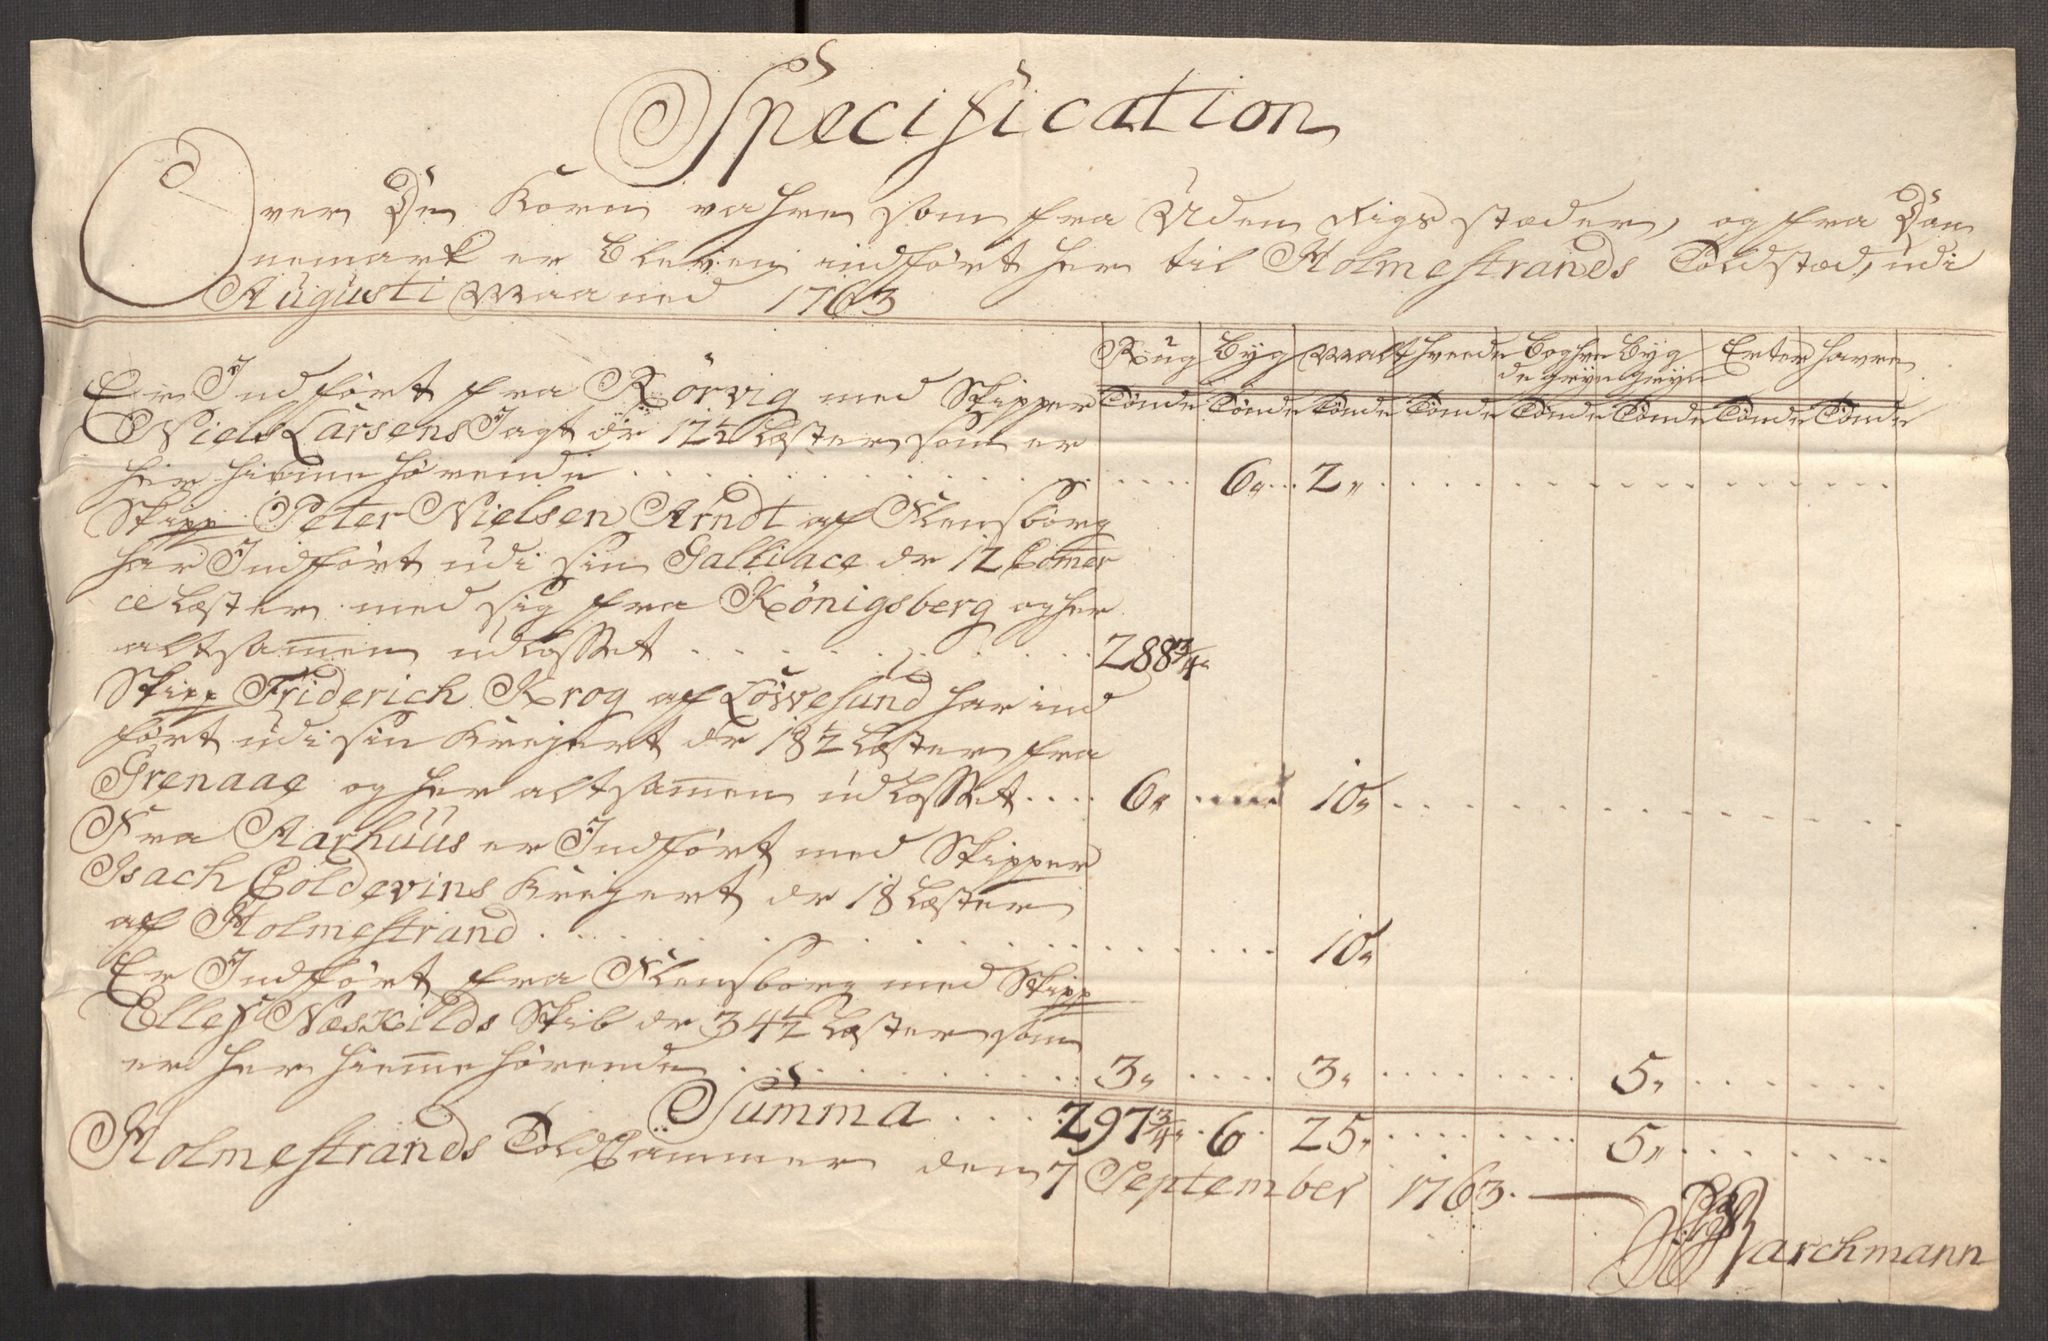 Specification
Over De Korn vahre som fra Uden Rigs stæder, og fra Dan
nemark er bleven indført her til Holmestrands Toldsted, udi
Augusti Maaned 1763
Rug Byg Malt Hvede Boghve Byg Erter Havre
de gryn gryn
Tønde Tønde Tønde Tønde Tønde Tønde Tønde Tønde
Er Indført fra Rörvig med Skipper
Niels Larsens Jagt dr 12½ Læster som er
her hiemmehørende 6,, 2,,
Skipp Peter Nielsen Arndt af Flensborg
har Indført udi sin Galliace dr 12 Comer
ce Læster med sig fra Königsberg og her
altsamen udlosset 288¾,,
Skipp Friderich Krog af har ind
ført udi sin Krejert dr 18½ Læster fra
Grenaae og her altsamen udlosset 6,, 10,,
Fra Aarhuus er Indført med Skipper
Isach Coldevins Krejert dr 18 Læster
af Holmestrand 10,,
Er Indført fra Flensborg med Skipp
Ellef Næskilds Skib dr 34½ Læster som
er her hiemmehørende 3,, 3,, 5,,
Summa 297¾,, 6 25,, 5,,
Holmestrands Told Cammer den 7 September 1763.
Barchmann